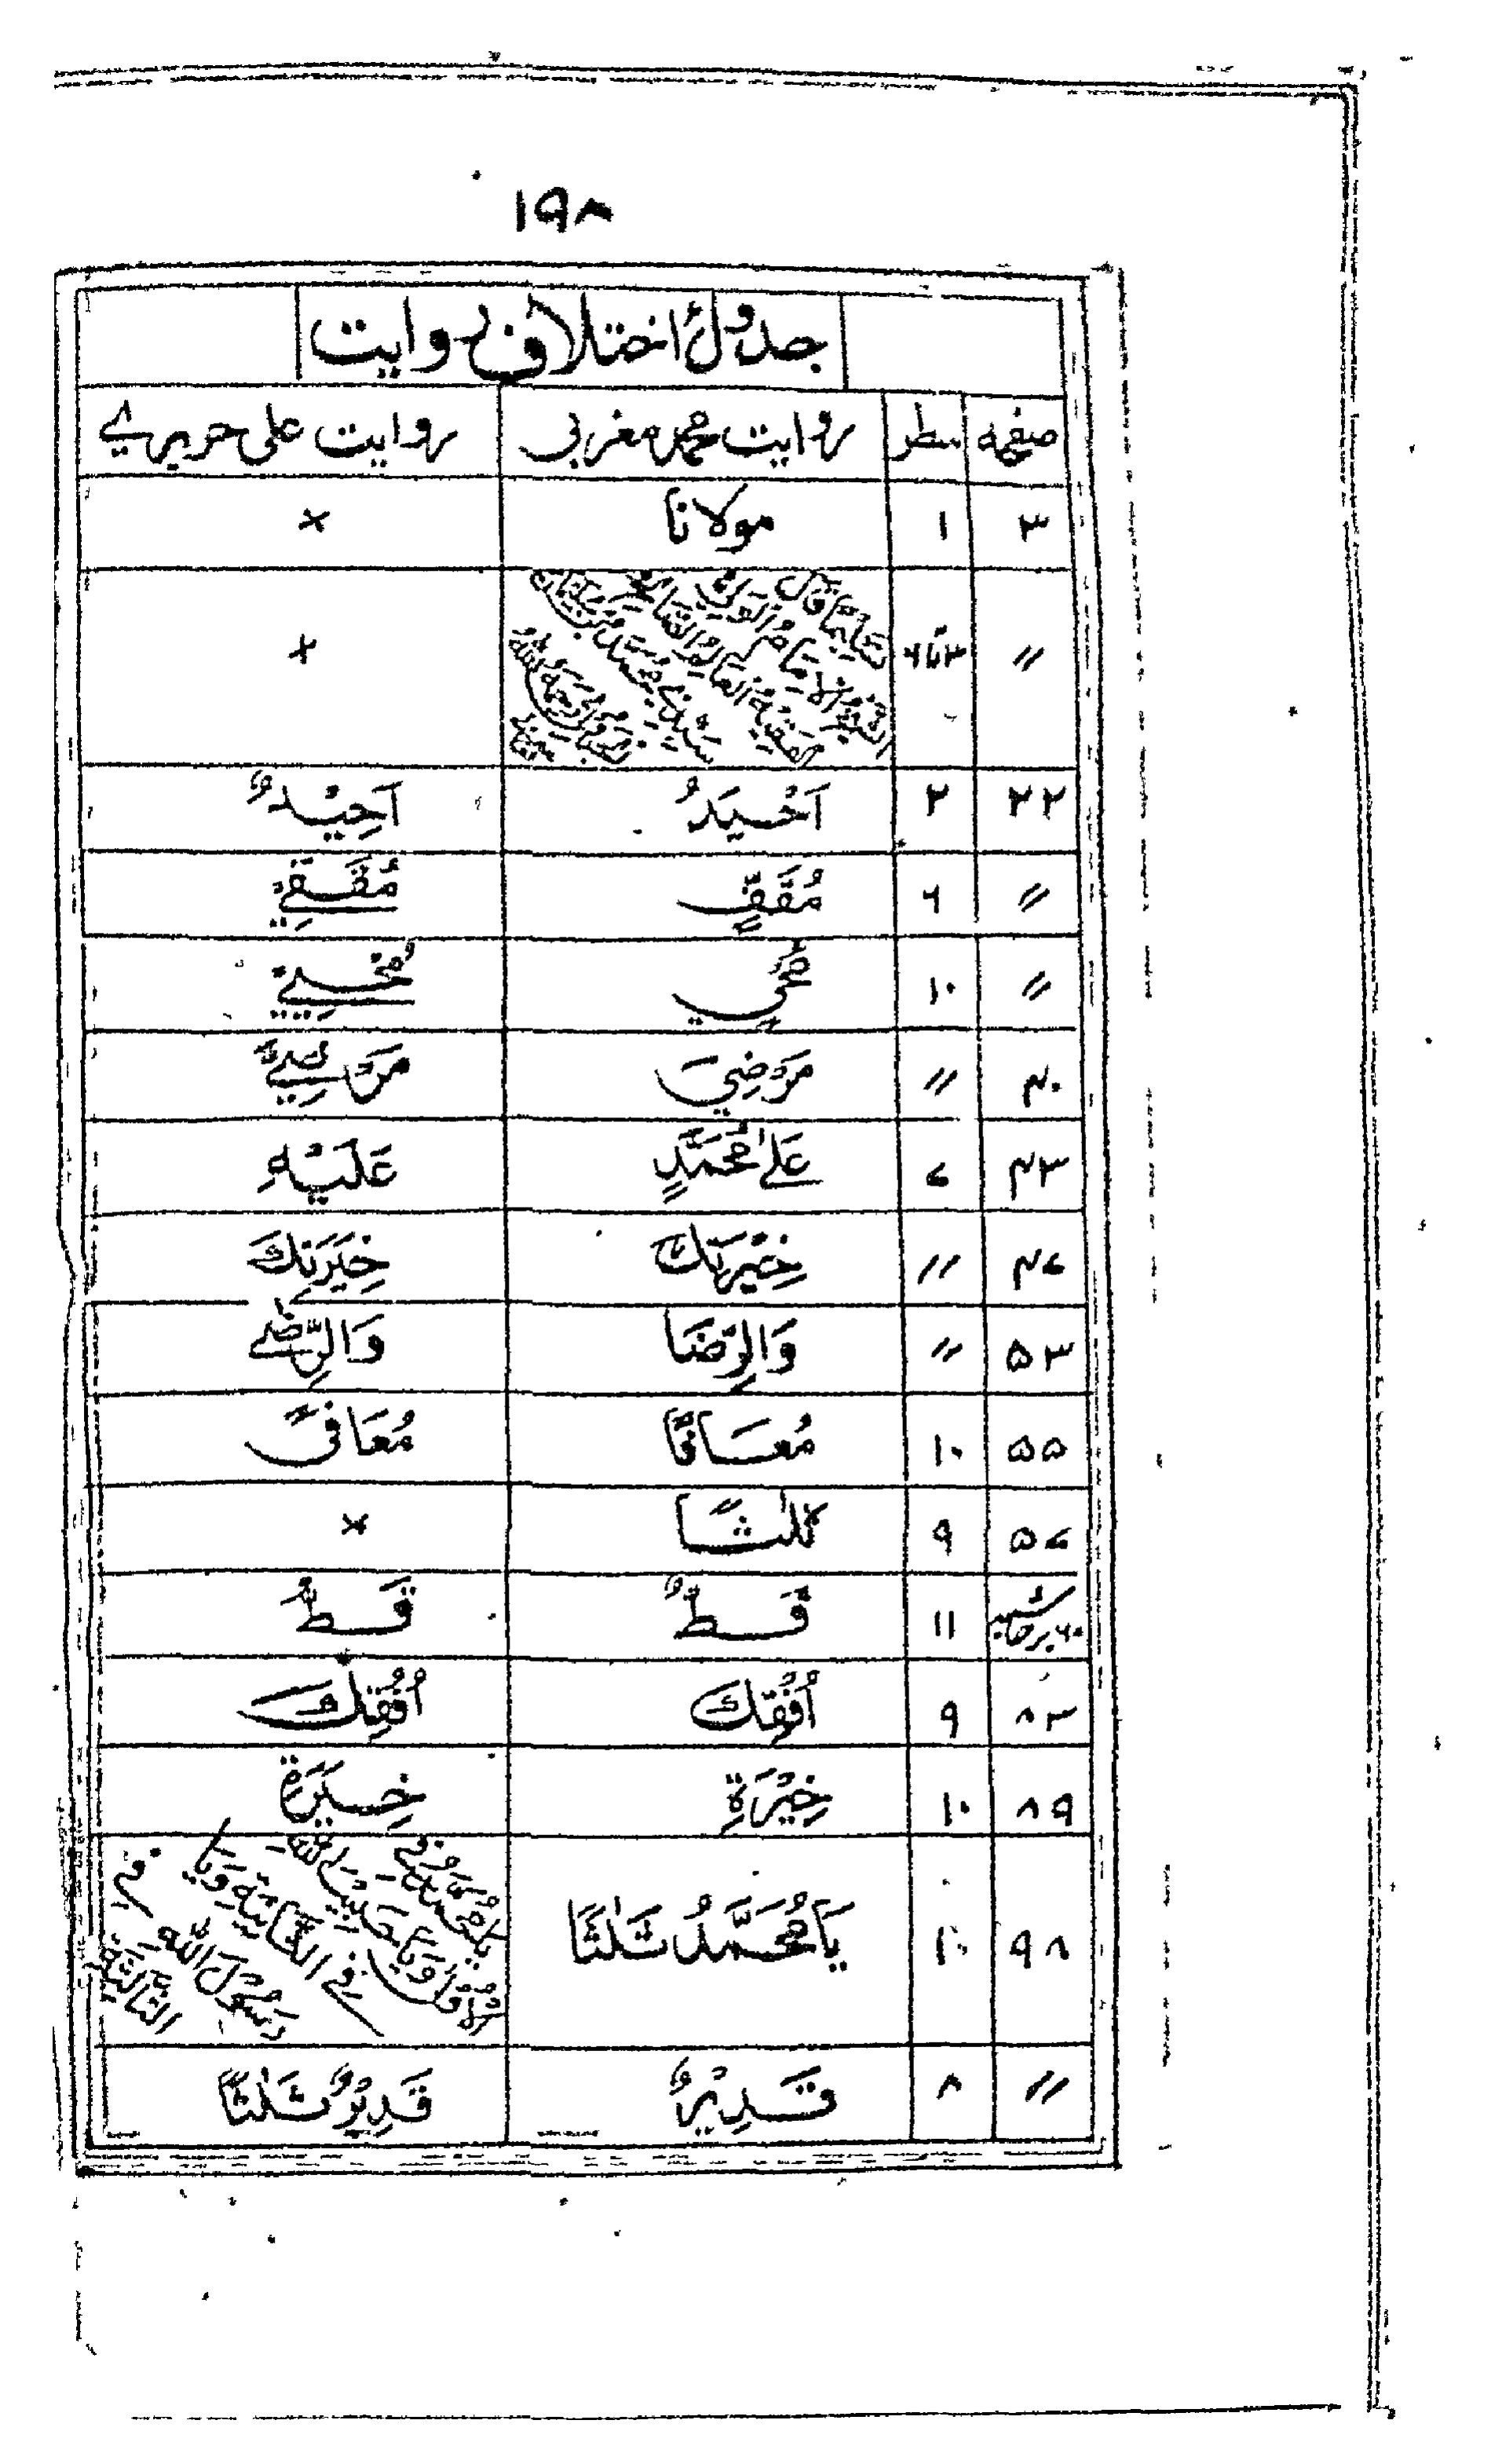 ۱۹۸
جدول اختلاف روایت
صفحہ سطر روایت محمد مغربی روایت علی حریری
۳ ۱ مولانا ×
〃 ۳تا۶ تسلیما قال الشیخ الامام ×
۲۲ ۲ اَحْیَدُ اَحِیْدٌ
〃 ۶ مُقَفٍّ مُقَفِّيْ
〃 ۱۰ مُحْيٍ مُحْيِيْ
۴۰ 〃 مَرْضِيَ
۴۳ ۷ عَلٰی مُحَمَّدٍ عَلَیْهِ
۴۷ 〃 خِیْرَتِكَ خِیَرَتِكَ
۵۳ 〃 وَالرِّضَا وَالرِّضٰے
۵۵ ۱۰ مُعَافًا مُعَافًی
۵۷ ۹ ثلٰثًا ×
۶۰ برحاشیہ ۱۱ قَطٌ قَطُّ
۸۳ ۹ اُفُقِكَ اُفُقِكَ
۸۹ ۱۰ خِیْرَةِ خِیَرَةِ
۹۸ ۱۰ یَا مُحَمَّدُ ثَلٰثًا یا محمد في الاول ویا حبیب الله في الثانیة ویا رسول الله في الثالثة
〃 ۸ قَدِیْرٌ قَدِیْرٌ ثَلٰثًا